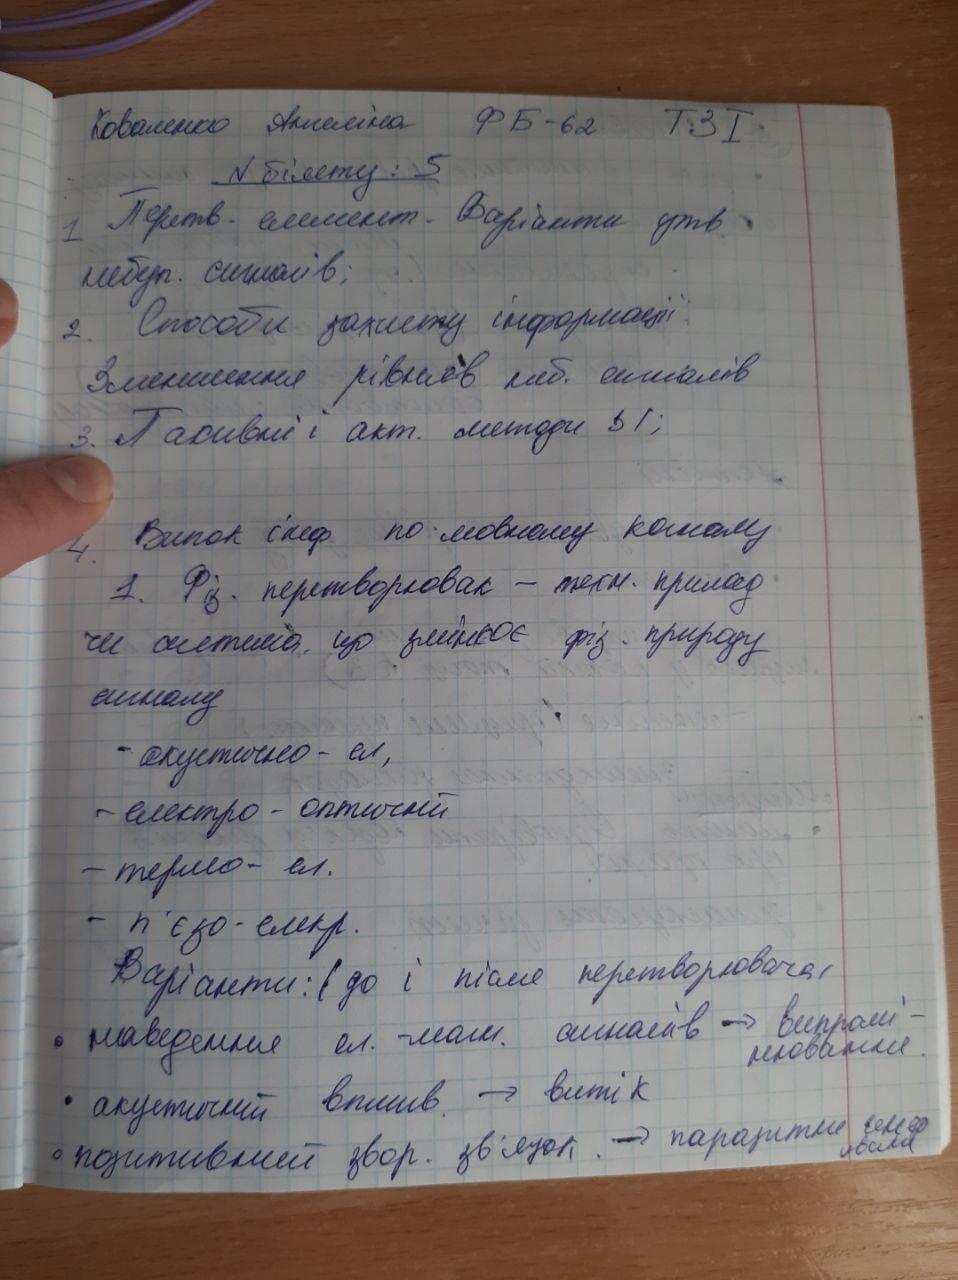 Коваленко Ангеліна ФБ-62 ТЗІ
N білету: 5
1 Перетв. елемент. Варіанти утв.
небезп. сигналів;
2. Способи захисту інформації.
Зменшення рівнів неб. сигналів
3. Пасивні і акт. методи ЗІ;
4. Виток інф по мовному каналу
1. Фіз. перетворювач – техн. прилад
чи система, що змінює фіз. природу
сигналу
- акустично-ел,
- електро-оптичний
- термо-ел.
- п'єзо-елект.
Варіанти: (до і після перетворювача)
• наведення ел.-магн. сигналів → випромі-
нювання.
• акустичний вплив. → витік
• позитивний звор. зв'язок. → паразитне